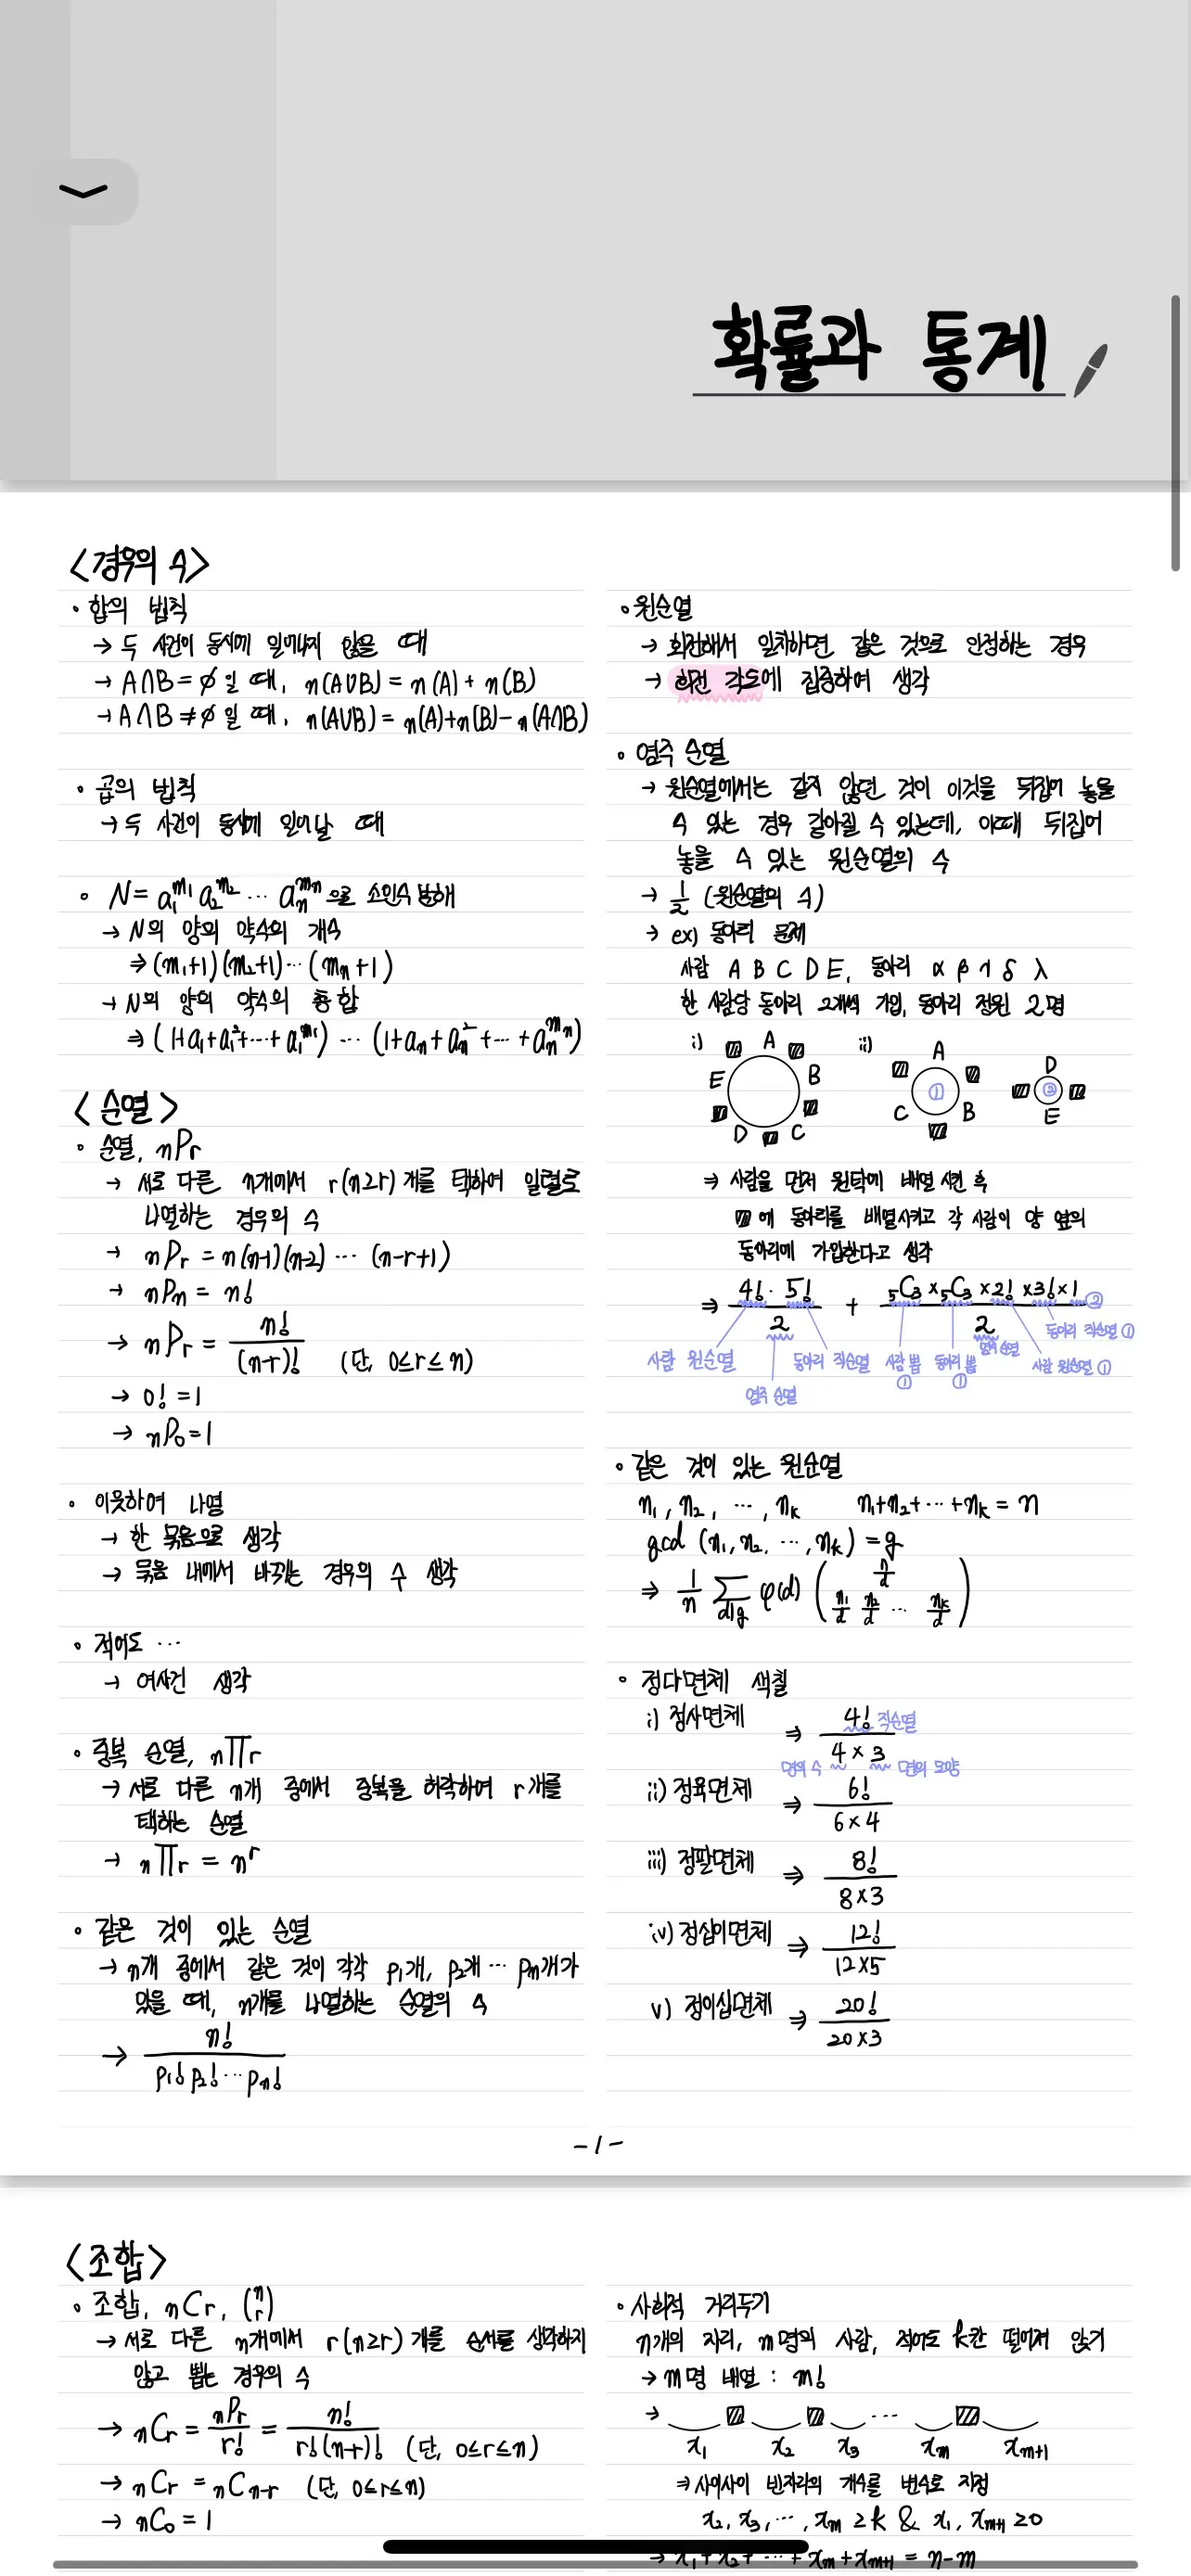 확률과 통계
<경우의 수>
◦ 합의 법칙
→ 두 사건이 동시에 일어나지 않을 때
→ A∩B=∅일 때, n(A∪B) = n(A) + n(B)
→ A∩B≠∅일 때, n(A∪B) = n(A)+n(B)-n(A∩B)
◦ 곱의 법칙
→ 두 사건이 동시에 일어날 때
◦ N = a₁^m₁ a₂^m₂ ⋯ aₙ^mₙ 으로 소인수 분해
→ N의 양의 약수의 개수
⇒ (m₁+1)(m₂+1)⋯(mₙ+1)
→ N의 양의 약수의 총합
⇒ (1+a₁+a₁²+⋯+a₁^m₁) ⋯ (1+aₙ+aₙ²+⋯+aₙ^mₙ)
<순열>
◦ 순열, nPr
→ 서로 다른 n개에서 r(n≥r)개를 택하여 일렬로
나열하는 경우의 수
→ nPr = n(n-1)(n-2) ⋯ (n-r+1)
→ nPn = n!
→ nPr = n!/(n-r)! (단, 0≤r≤n)
→ 0! = 1
→ nP₀ = 1
◦ 이웃하여 나열
→ 한 묶음으로 생각
→ 묶음 내에서 바뀌는 경우의 수 생각
◦ 적어도 ⋯
→ 여사건 생각
◦ 중복 순열, nΠr
→ 서로 다른 n개 중에서 중복을 허락하여 r개를
택하는 순열
→ nΠr = n^r
◦ 같은 것이 있는 순열
→ n개 중에서 같은 것이 각각 p₁개, p₂개 ⋯ pₙ개가
있을 때, n개를 나열하는 순열의 수
→ n!/(p₁!p₂!⋯pₙ!)
◦ 원순열
→ 회전해서 일치하면 같은 것으로 인정하는 경우
→ 회전 각도에 집중하여 생각
◦ 염주 순열
→ 원순열에서는 같지 않던 것이 이것을 뒤집어 놓을
수 있는 경우 같아질 수 있는데, 이때 뒤집어
놓을 수 있는 원순열의 수
→ 1/2 (원순열의 수)
→ ex) 동아리 문제
사람 A B C D E, 동아리 α β γ δ λ
한 사람당 동아리 2개씩 가입, 동아리 정원 2명
i) A B C D E
ii) A B C ① D E ②
⇒ 사람을 먼저 원탁에 배열 시킨 후
▨에 동아리를 배열시키고 각 사람이 양 옆의
동아리에 가입한다고 생각
⇒ (4! · 5!)/2 + (₅C₃×₅C₃×2!×3!×1)/2 ②
사람 원순열 동아리 직순열 염주 순열
사람 뽑 ① 동아리 뽑 ① 염주 순열 사람 원순열 ① 동아리 직순열 ①
◦ 같은 것이 있는 원순열
n₁, n₂, ⋯, nk n₁+n₂+⋯+nk = n
gcd (n₁, n₂, ⋯, nk) = g
⇒ 1/n Σ_{d|g} φ(d) (n/d ; n₁/d n₂/d ⋯ nk/d)
◦ 정다면체 색칠
i) 정사면체 ⇒ 4!/(4×3) 직순열 면의 수 면의 모양
ii) 정육면체 ⇒ 6!/(6×4)
iii) 정팔면체 ⇒ 8!/(8×3)
iv) 정십이면체 ⇒ 12!/(12×5)
v) 정이십면체 ⇒ 20!/(20×3)
-1-
<조합>
◦ 조합, nCr, (n r)
→ 서로 다른 n개에서 r(n≥r)개를 순서를 생각하지
않고 뽑는 경우의 수
→ nCr = nPr/r! = n!/(r!(n-r)!) (단, 0≤r≤n)
→ nCr = nCn-r (단, 0≤r≤n)
→ nC₀ = 1
◦ 사회적 거리두기
n개의 자리, m명의 사람, 적어도 k칸 떨어져 앉기
→ m명 배열 : m!
→ x₁ ▨ x₂ ▨ x₃ ⋯ xm ▨ xm+1
⇒ 사이사이 빈자리의 개수를 변수로 지정
x₂, x₃, ⋯, xm ≥ k & x₁, xm+1 ≥ 0
→ x₁+x₂+⋯+xm+xm+1 = n-m